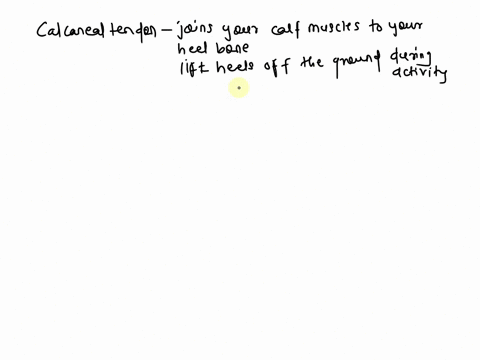 Calcaneal tendon – joins your calf muscles to your
heel bone
lift heels off the ground during
activity